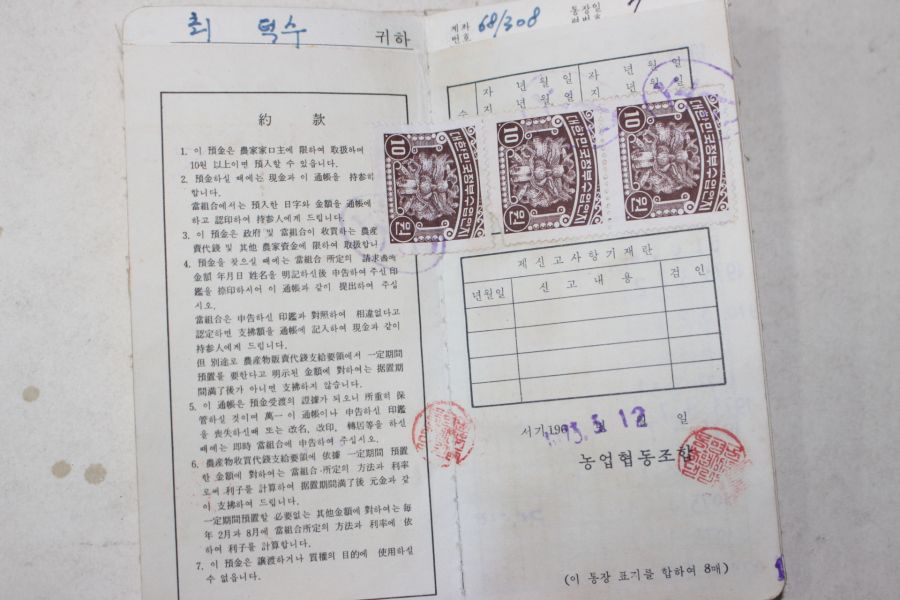 최 덕수 귀하
約款
1. 이 預金은 農家家口主에 限하여 取扱하며
10원 以上이면 預入할 수 있읍니다.
2. 預金하실 때에는 現金과 이 通帳을 持參히
합니다.
當組合에서는 預入한 日字와 金額을 通帳에
하고 認印하여 持參人에게 드립니다.
3. 이 預金은 政府 및 當組合이 收買하는 農産
賣代錢 및 其他 農家資金에 限하여 取扱합니
4. 預金을 찾으실 때에는 當組合 所定의 請求書에
金額 年月日 姓名을 明記하신後 申告하여 주신 印
鑑을 捺印하시어 이 通帳과 같이 提出하여 주십
시오.
當組合은 申告하신 印鑑과 對照하여 相違없다고
認定하면 支拂額을 通帳에 記入하여 現金과 같이
持參人에게 드립니다.
但 別途로 農産物販賣代錢支給要領에서 一定期間
預置를 要한다고 明示된 金額에 對하여는 据置期
間滿了後가 아니면 支拂하지 않습니다.
5. 이 通帳은 預金受渡의 證據가 되오니 所重히 保
管하실 것이며 萬一 이 通帳이나 申告하신 印鑑
을 喪失하신때 또는 改名、改印、轉居等을 하신
때에는 即時 當組合에 申告하여 주십시오.
6. 農産物收買代錢支給要領에 依據 一定期間 預置
한 金額에 對하여는 當組合 所定의 方法과 利率
로써 利子를 計算하여 据置期間滿了後 元金과 같
이 支拂하여 드립니다.
一定期間預置할 必要없는 其他金額에 對하여는 每
年 2月과 8月에 當組合所定의 方法과 利率에 依
하여 利子를 計算합니다.
7. 이 預金은 讓渡하거나 質權의 目的에 使用하실
수 없읍니다.
계좌번호 68/308
통장일련번호
자 년 월 일 자 년 월 일
지 년 월 일 지 년 월 일
수
10 원 대한민국정부수입인지
10 원 대한민국정부수입인지
10 원 대한민국정부수입인지
제신고사항기재란
년월일 신고내용 검인
서기196 일
농업협동조합
(이 통장 표기를 합하여 8매)